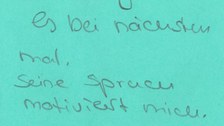 es bei nächsten
mal.
seine spruch
motiviert mich.